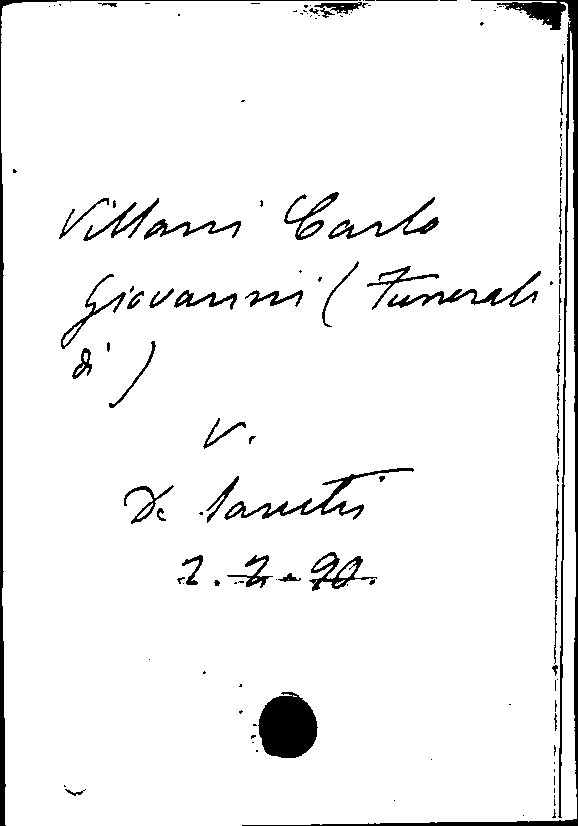 Villani Carlo
Giovanni (Funerali
di)
V.
De Sanctis
2.2.90.